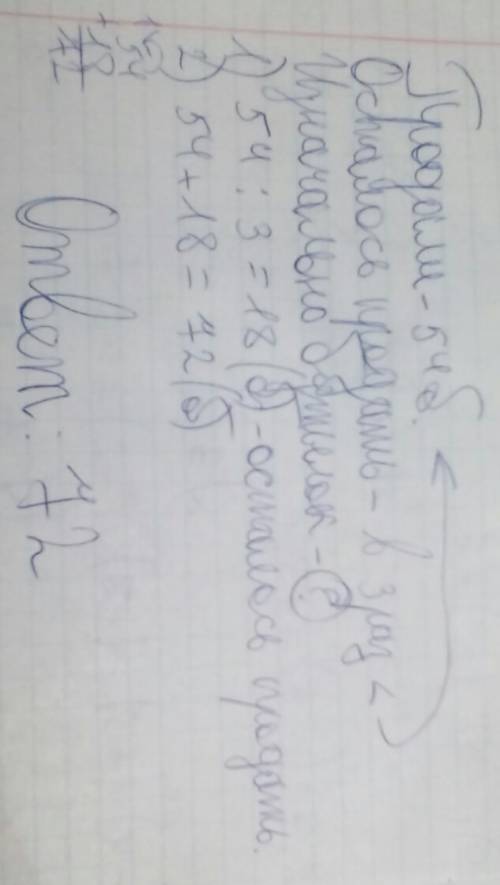 Продали - 54 б.
Осталось продать - в 3 раз <
Изначально бутылок - ?
1) 54 : 3 = 18 (б) - осталось продать.
2) 54 + 18 = 72 (б)
1
54
+ 18
72
Ответ: 72